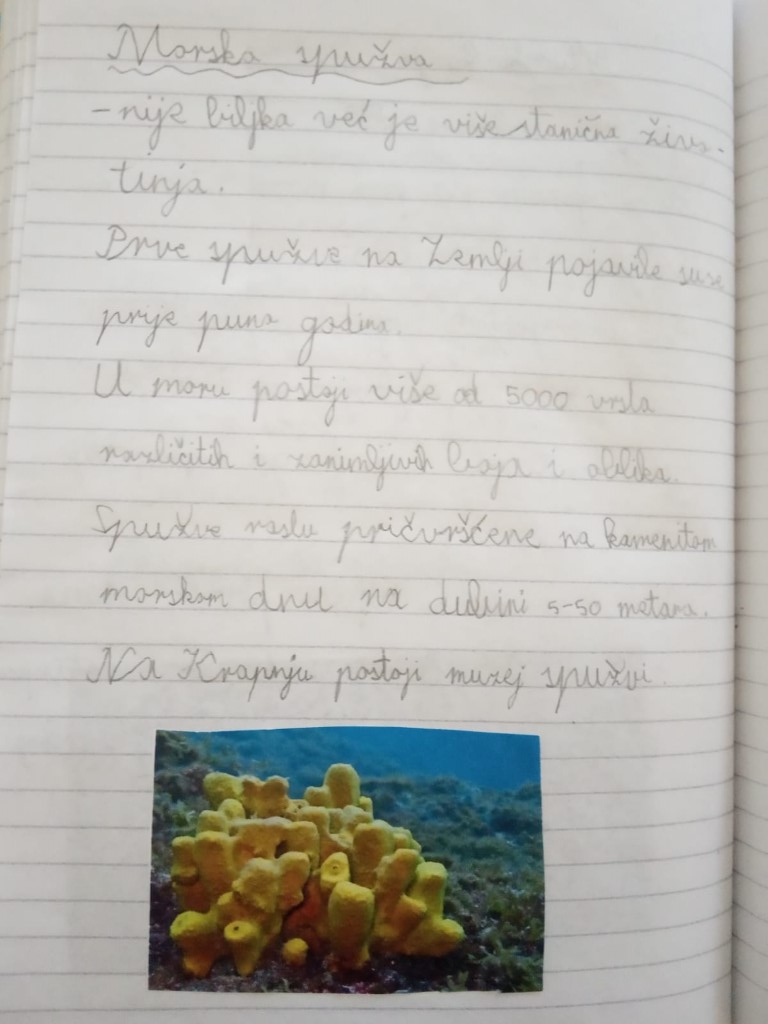 Morska spužva
- nije biljka već je više stanična živo-
tinja.
Prve spužve na Zemlji pojavile su se
prije puno godina.
U moru postoji više od 5000 vrsta
različitih i zanimljivih boja i oblika.
Spužve rastu pričvršćene na kamenitom
morskom dnu na dubini 5-50 metara.
Na Krapnju postoji muzej spužvi.